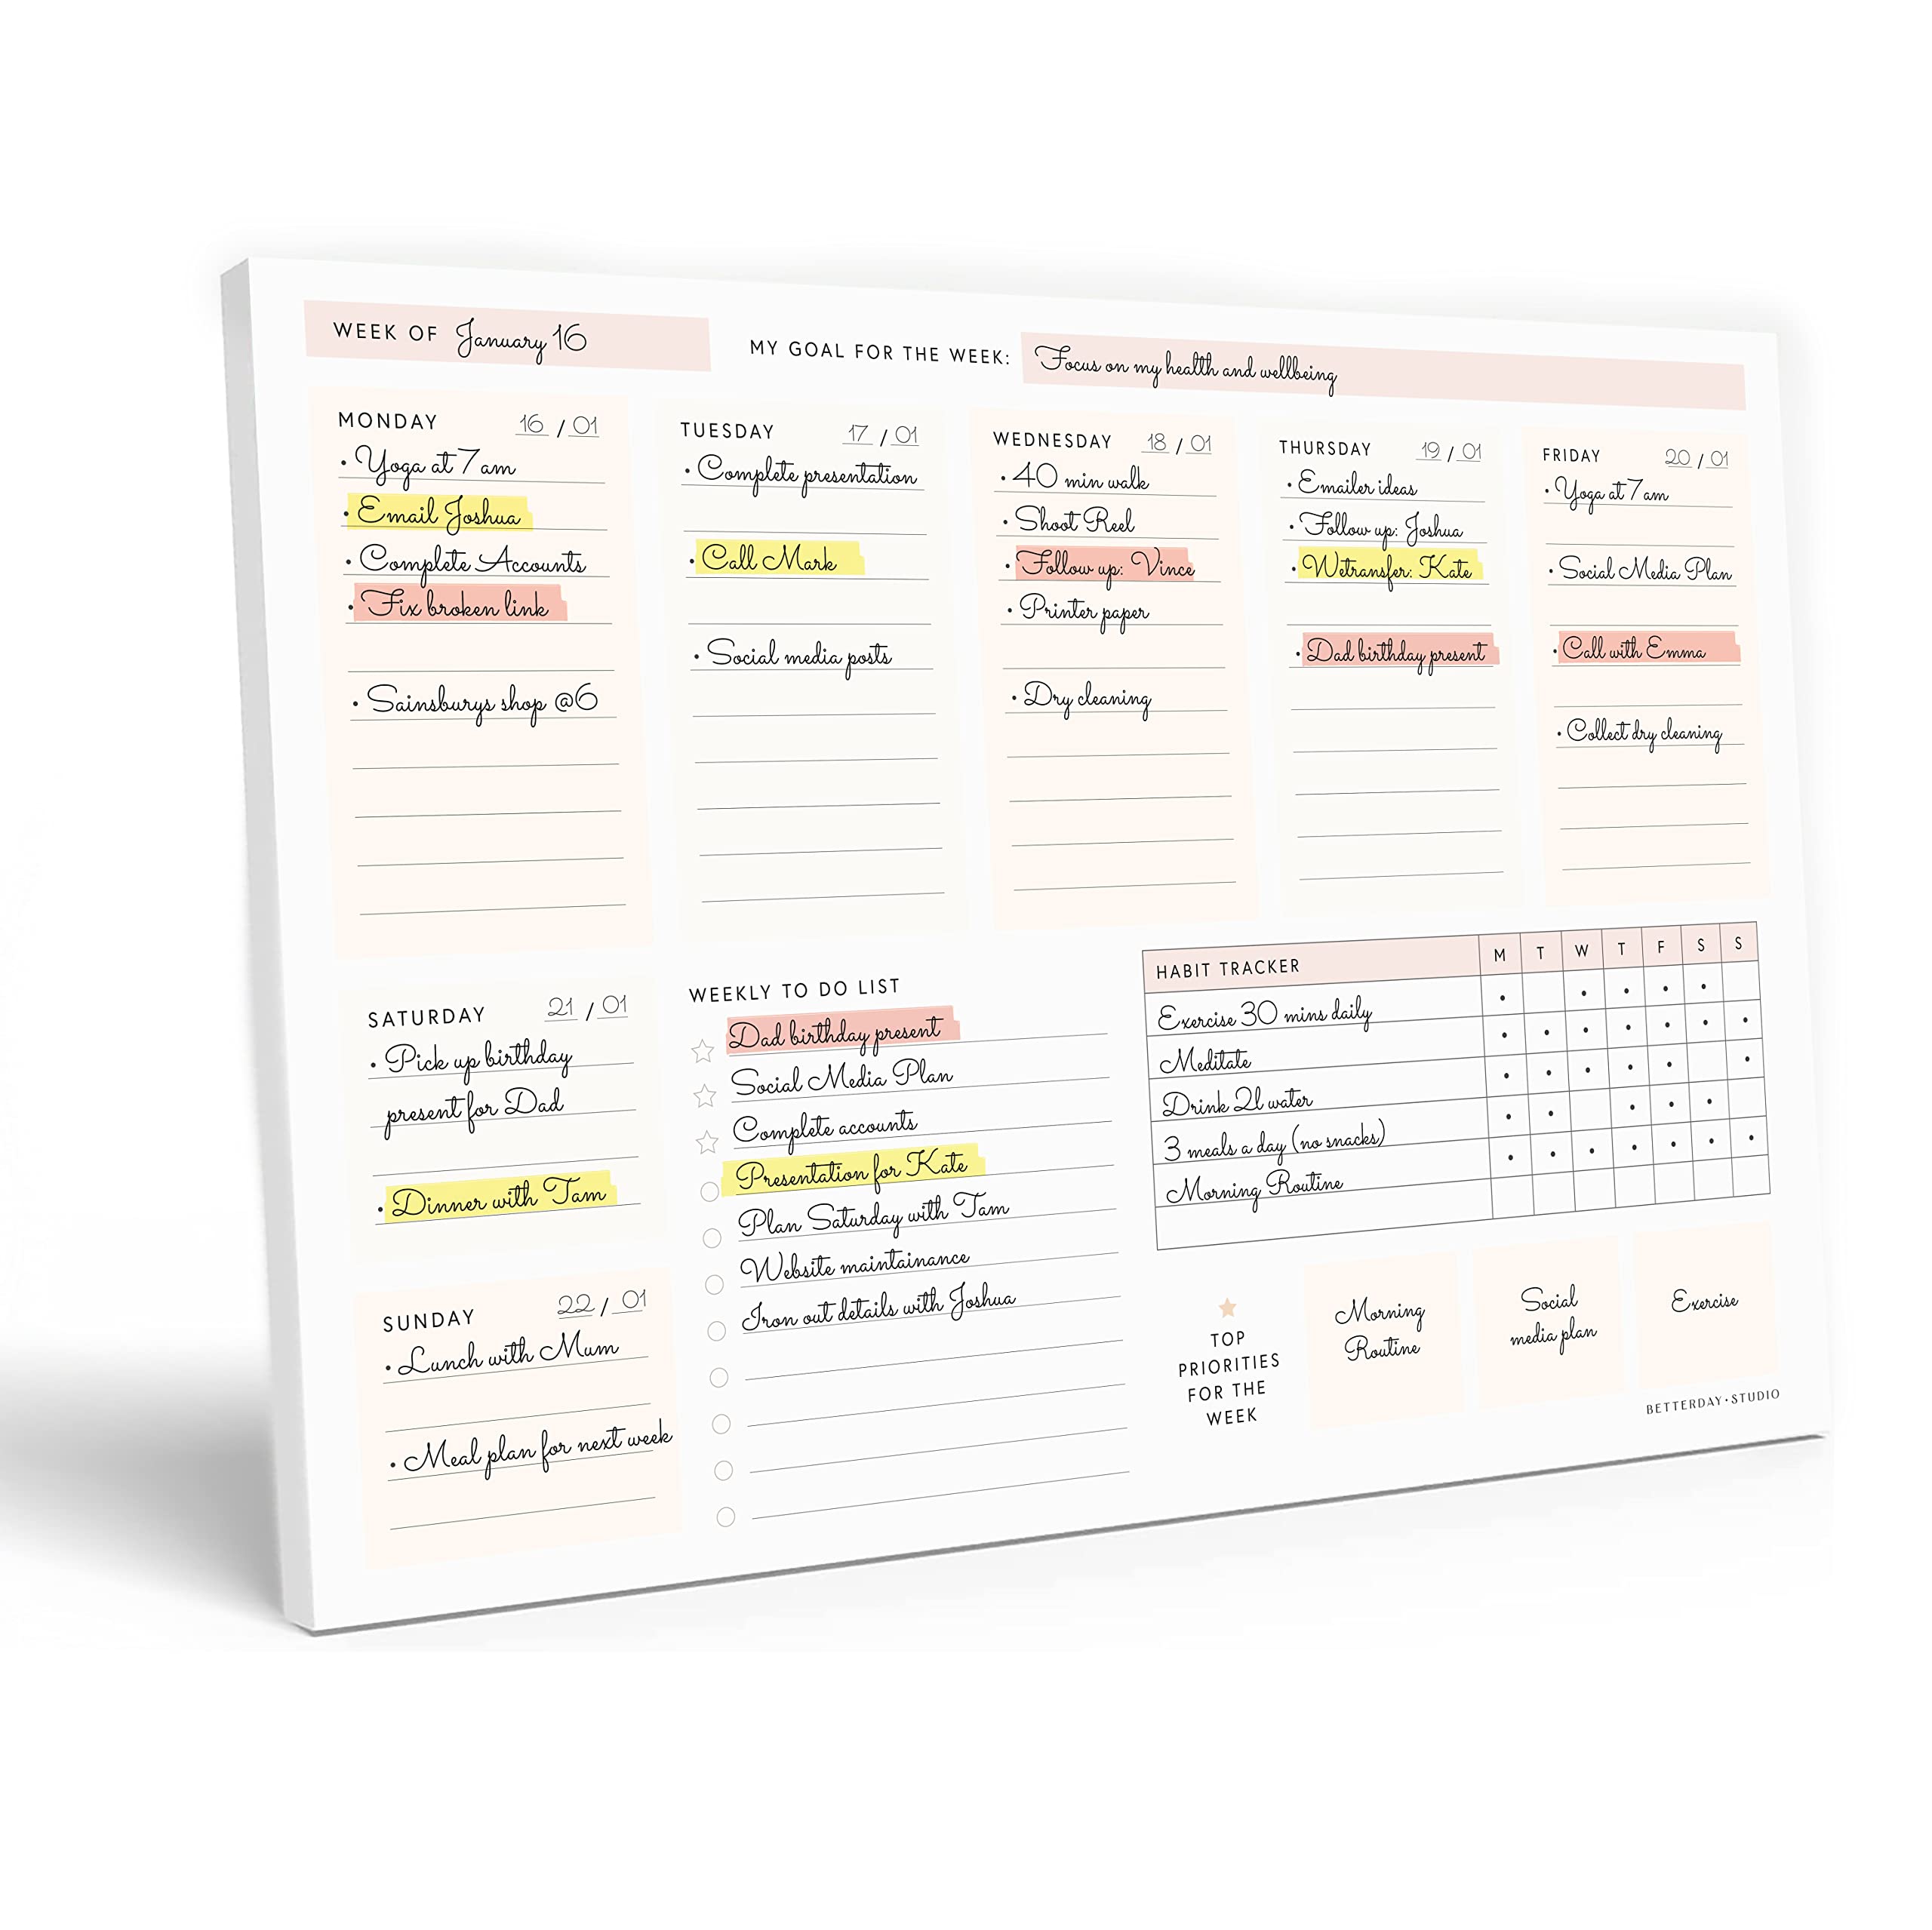 WEEK OF January 16
MY GOAL FOR THE WEEK: Focus on my health and wellbeing
MONDAY 16 / 01
• Yoga at 7am
• Email Joshua
• Complete Accounts
• Fix broken link
• Sainsburys shop @6
TUESDAY 17 / 01
• Complete presentation
• Call Mark
• Social media posts
WEDNESDAY 18 / 01
• 40 min walk
• Shoot Reel
• Follow up: Vince
• Printer paper
• Dry cleaning
THURSDAY 19 / 01
• Emailer ideas
• Follow up: Joshua
• Wetransfer: Kate
• Dad birthday present
FRIDAY 20 / 01
• Yoga at 7am
• Social Media Plan
• Call with Emma
• Collect dry cleaning
SATURDAY 21 / 01
• Pick up birthday
present for Dad
• Dinner with Tam
SUNDAY 22 / 01
• Lunch with Mum
• Meal plan for next week
WEEKLY TO DO LIST
Dad birthday present
Social Media Plan
Complete accounts
Presentation for Kate
Plan Saturday with Tam
Website maintainance
Iron out details with Joshua
HABIT TRACKER M T W T F S S
Exercise 30 mins daily
Meditate
Drink 2l water
3 meals a day (no snacks)
Morning Routine
TOP
PRIORITIES
FOR THE
WEEK
Morning
Routine
Social
media plan
Exercise
BETTERDAY • STUDIO